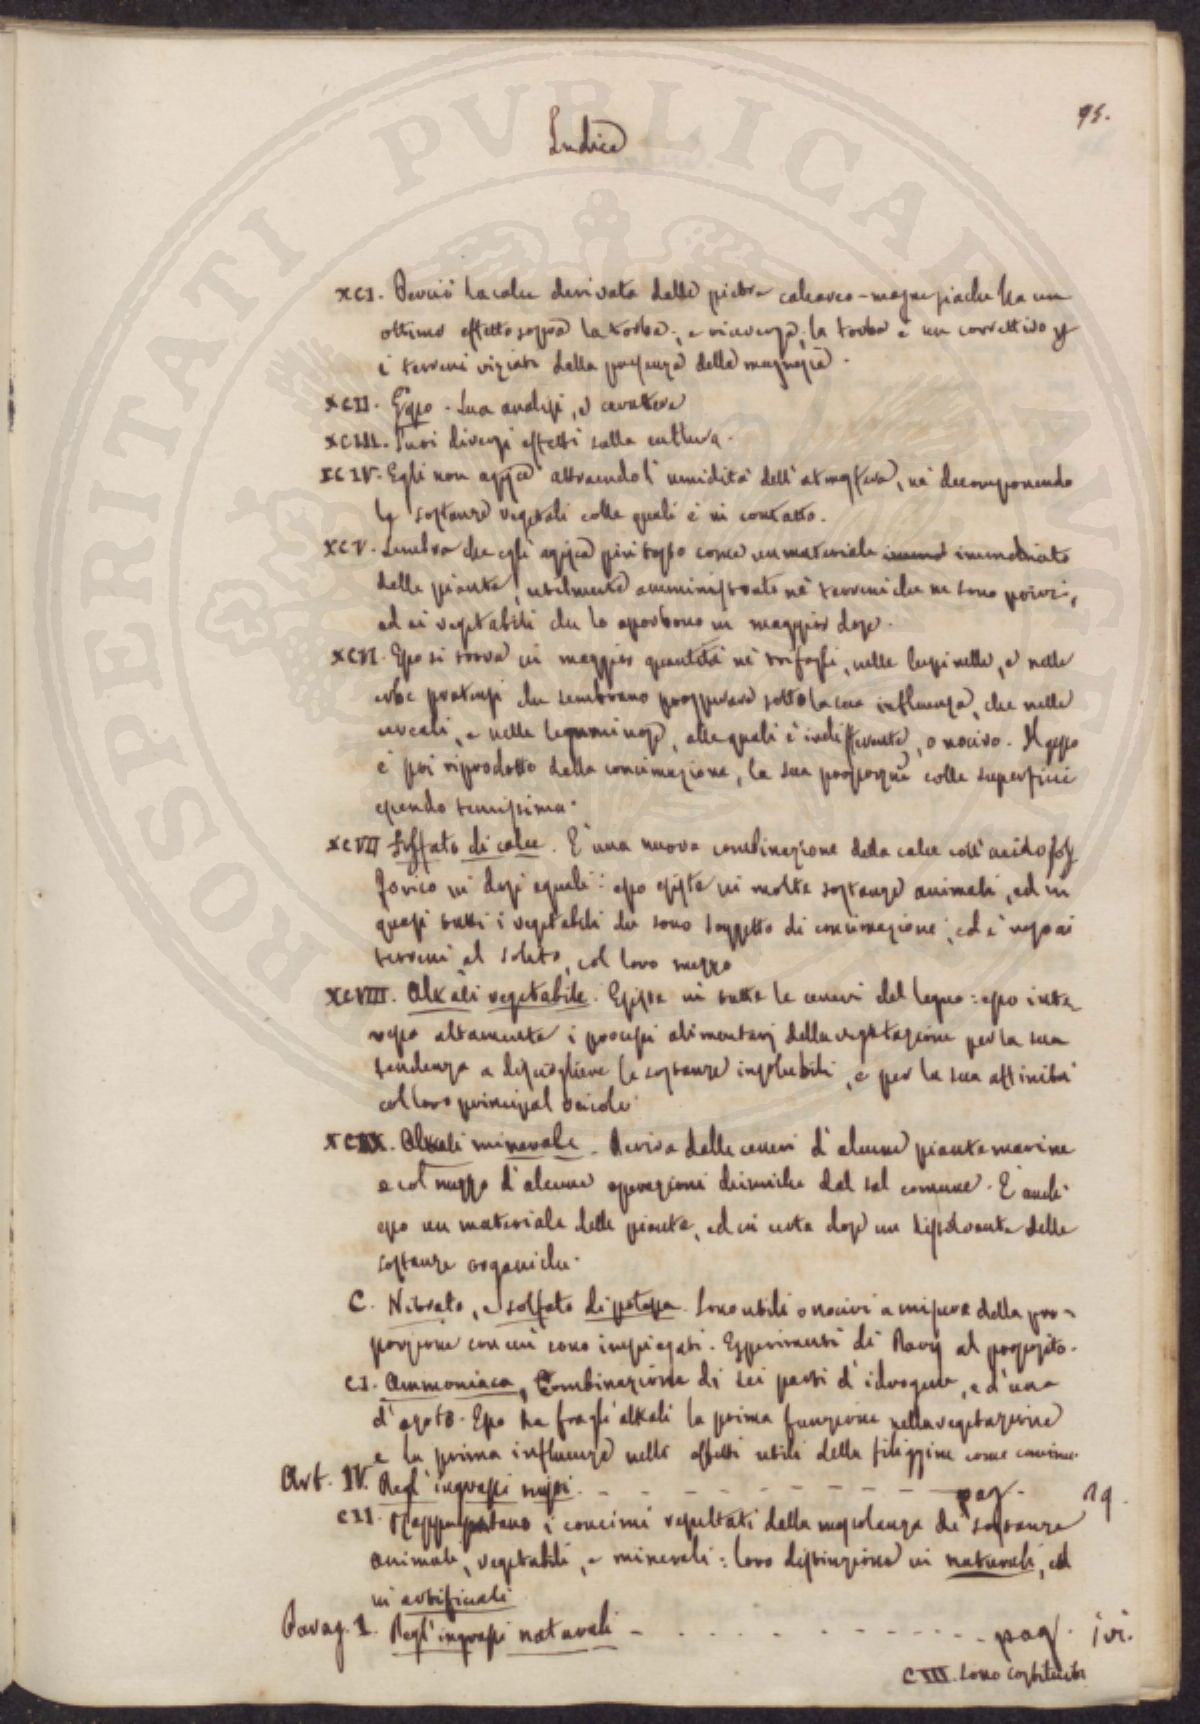 95.
Indice
PROSPERITATI PVBLICAE AVGENDAE
XCI. Perciò la calce derivata dalle pietre calcareo-magnesiache ha un
ottimo effetto sopra la torba; e viceversa, la torba è un correttivo p
i terreni viziati dalla presenza della magnesia.
XCII. Gesso. Sua analisi, e carattere
XCIII. Suoi diversi effetti sulla cultura.
XCIV. Egli non agisce attraendo l'umidità dell'atmosfera, nè decomponendo
le sostanze vegetali colle quali è in contatto.
XCV. Sembra che egli agisca piuttosto come un materiale immed immediato
delle piante, utilmente amministrato ne' terreni che ne sono privi,
ed ai vegetabili che lo assorbono in maggior dose.
XCVI. Esso si trova in maggior quantità ne' trifogli, nelle lupinelle, e nelle
erbe pratensi che sembrano prosperare sotto la sua influenza, che nelle
cereali, e nelle leguminose, alle quali è indifferente, o nocivo. Il gesso
è poi riprodotto dalla concimazione, la sua proporzione colle superficie
essendo tenuissima.
XCVII Fosfato di calce. È una nuova combinazione della calce coll'acido fos
forico in dosi eguali: esso esiste in molte sostanze animali, ed in
quasi tutti i vegetabili che sono soggetto di concimazione, ed è reso ai
terreni al solito, col loro mezzo
XCVIII. Alkali vegetabile. Esiste in tutte le ceneri del legno: esso inte-
ressa altamente i processi alimentarj della vegetazione per la sua
tendenza a disciogliere le sostanze insolubili, e per la sua affinità
col loro principal veicolo.
XCIX. Alkali minerale. Deriva dalle ceneri d'alcune piante marine
e col mezzo d'alcune operazioni chimiche dal sal comune. È anch'
esso un materiale delle piante, ed in certa dose un dissolvente delle
sostanze organiche.
C. Nitrato, e solfato di potassa. Sono utili o nocivi a misura della pro-
porzione con cui sono impiegati. Esperimenti di Davy al proposito.
CI. Ammoniaca, Combinazione di sei parti d'idrogene, e d'una
d'azoto. Esso ha fra gli alkali la prima funzione nella vegetazione
e la prima influenza nelli effetti utili della filiggine come concime.
Art. IV. Degl'ingrassi misti. - - - - - - - - - pag. 19.
CII. Rappresentano i concimi resultati dalla mescolanza di sostanze
animali, vegetabili, e minerali: loro distinzione in naturali, ed
in artificiali.
Parag. I. Degl'ingrassi naturali - - - - - - - - - pag. ivi.
CIII. Sono costituiti